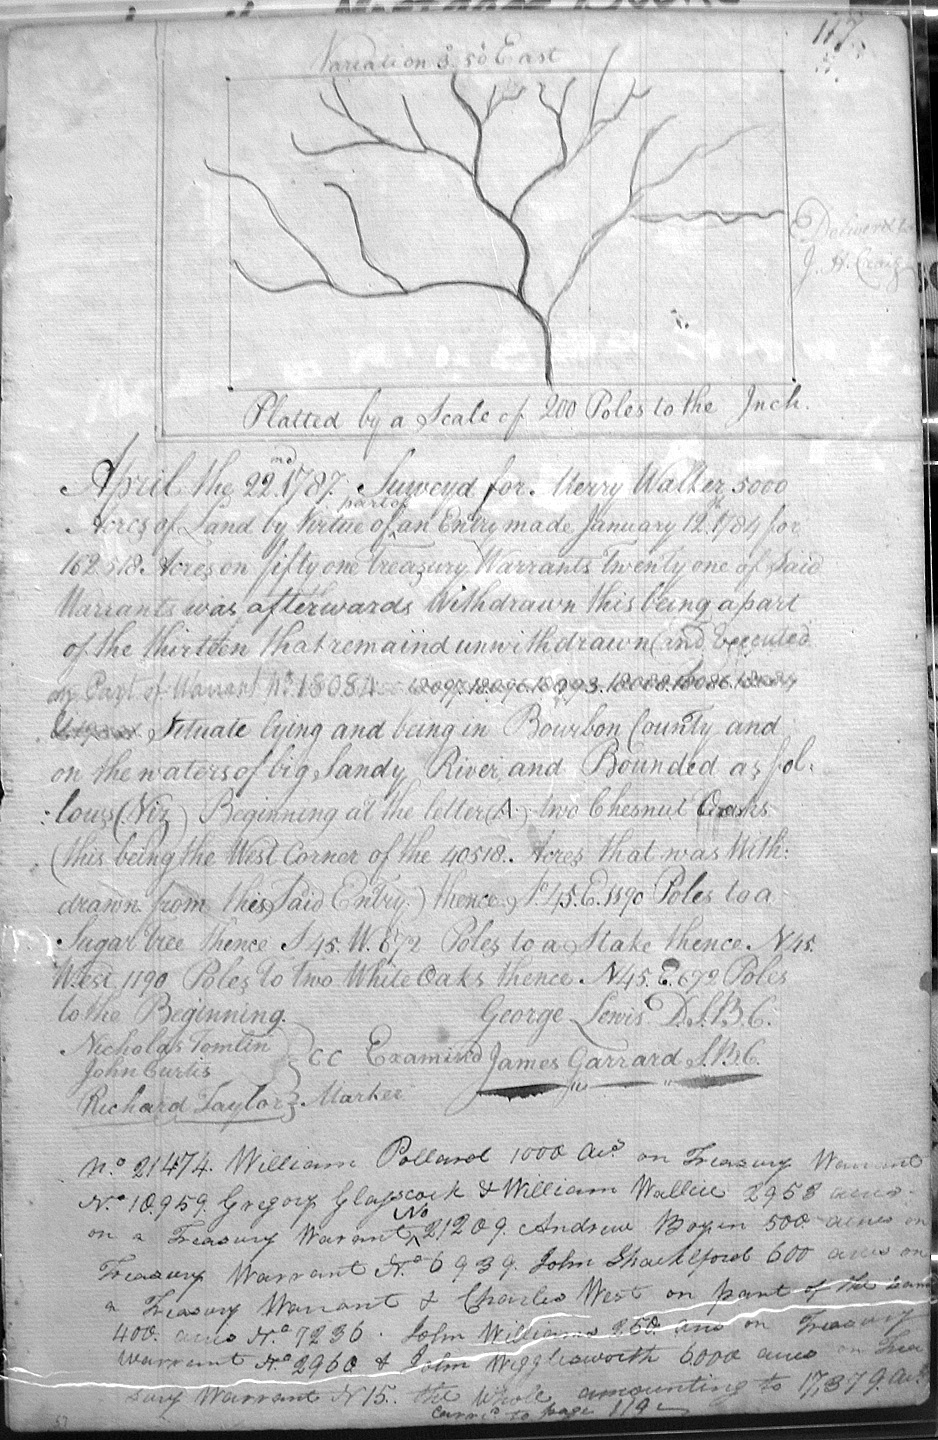 117
Variation 3° 50' East
Delivered to
J. H. Craig
Platted by a Scale of 200 Poles to the Inch.
April the 22nd 1787. Surveyd for Merry Walker 5000
Acres of Land by Virtue of part of an Entry made January 12th 1784 for
162518 Acres on fifty one treasury Warrants Twenty one of Said
Warrants was afterwards Withdrawn this being a part
of the thirteen that remaind unwithdrawn (and Executed
on Part of Warrant No 18084
Situate lying and being in Bourbon County and
on the waters of big Sandy River, and Bounded as fol-
:lows (Viz) Beginning at the letter (A) two Chesnut Oaks
(this being the West Corner of the 40518. Acres that was With:
drawn from this Said Entry.) thence S. 45. E. 1190 Poles to a
Sugar tree thence S 45. W. 672 Poles to a Stake thence N 45.
West, 1190 Poles to two White Oaks thence N 45. E. 672 Poles
to the Beginning. George Lewis D.S.B.C.
Nicholas Tomlin
John Curtis } CC Examind James Garrard S.B.C.
Richard Taylor } Marker
No 21474. William Pollard 1000 acs on Treasury Warrant
No 10.959. Gregory Glasscock & William Wallice 2958 acres.
on a Treasury Warrant No 21209. Andrew Boyen 500 acres on
Treasury Warrant No 6939. John Shackelford 600 acres on
a Treasury Warrant & Charles West on part of the same
400. acres No 7236. John Williams 260. acres on Treasury
Warrant No 2960 & John Wigglesworth 6000 acres on Trea
sury Warrant N 15. the whole amounting to 17,379. acs
carrid to page 119